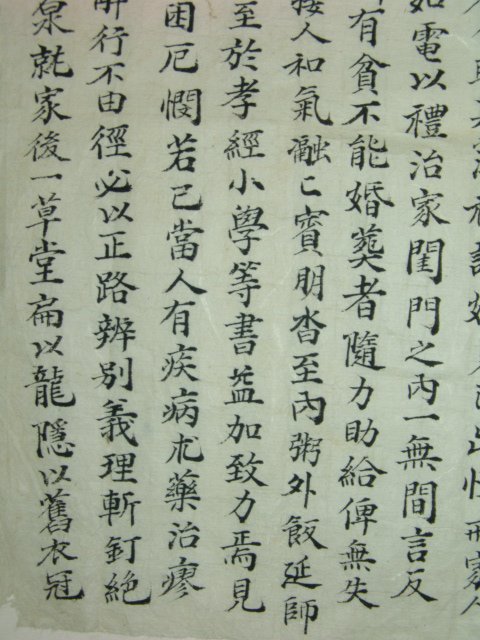 電以禮治家閨門之內一無間言反
有貧不能婚葬者隨力助給俾無失
接人和氣瀜〻賓朋沓至內粥外飯延師
至於孝經小學等書益加致力焉見
困厄憫若己當人有疾病求藥治瘳
行不由徑必以正路辨別義理斬釘絶
泉就家後一草堂扁以龍隱以舊衣冠